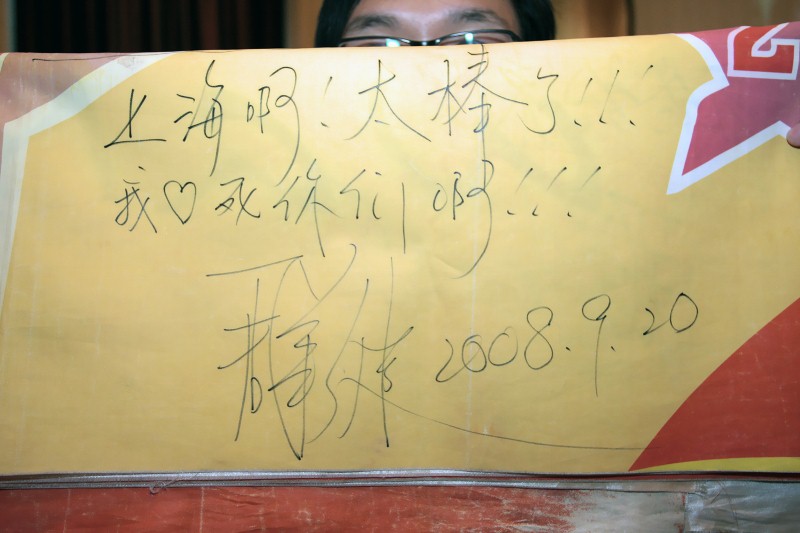 上海啊！太棒了！！！
我♡死你们啊！！！
2008.9.20